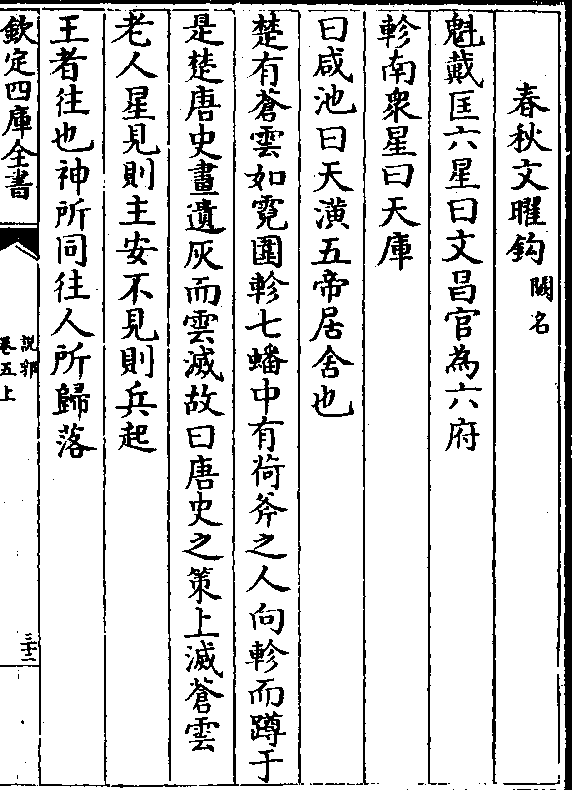 春秋文曜鈎 闕名
魁戴匡六星曰文昌官為六府
軫南衆星曰天庫
曰咸池曰天潢五帝居舍也
楚有蒼雲如霓圍軫七蟠中有荷斧之人向軫而蹲于
是楚唐史畫遺灰而雲滅故曰唐史之策上滅蒼雲
老人星見則主安不見則兵起
王者往也神所同往人所歸落
欽定四庫全書
說郛
卷五上
三十二